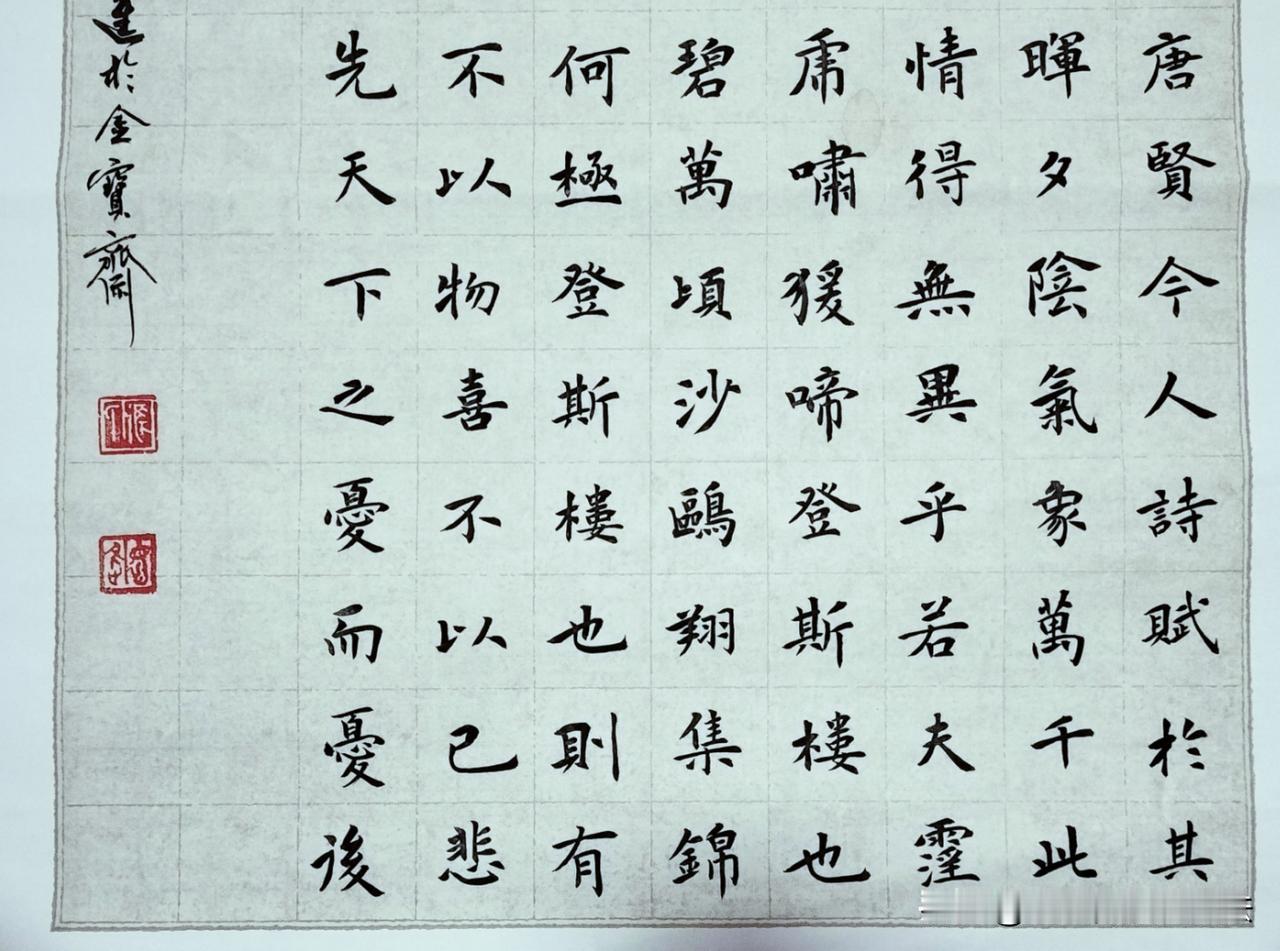 唐賢今人詩賦於其
暉夕陰氣象萬千此
情得無異乎若夫霪
虎嘯猨啼登斯樓也
碧萬頃沙鷗翔集錦
何極登斯樓也則有
不以物喜不以己悲
先天下之憂而憂後
進於金寶齋